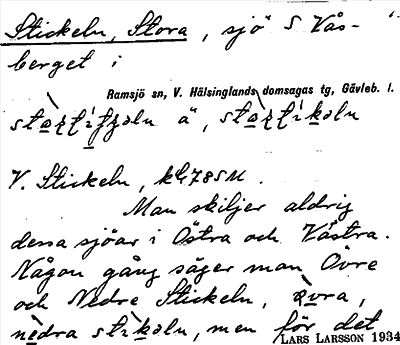 Stickeln, Stora, sjö S Vås-
berget i
Ramsjö sn, V. Hälsinglands domsagas tg, Gävleb. l.
ä,
V. Stickeln, kbl 78 SM.
Man skiljer aldrig
dessa sjöar i Östra och Västra.
Någon gång säger man Övre
och Nedre Stickeln, övra,
nèdra stikəln, men för det
LARS LARSSON 1934